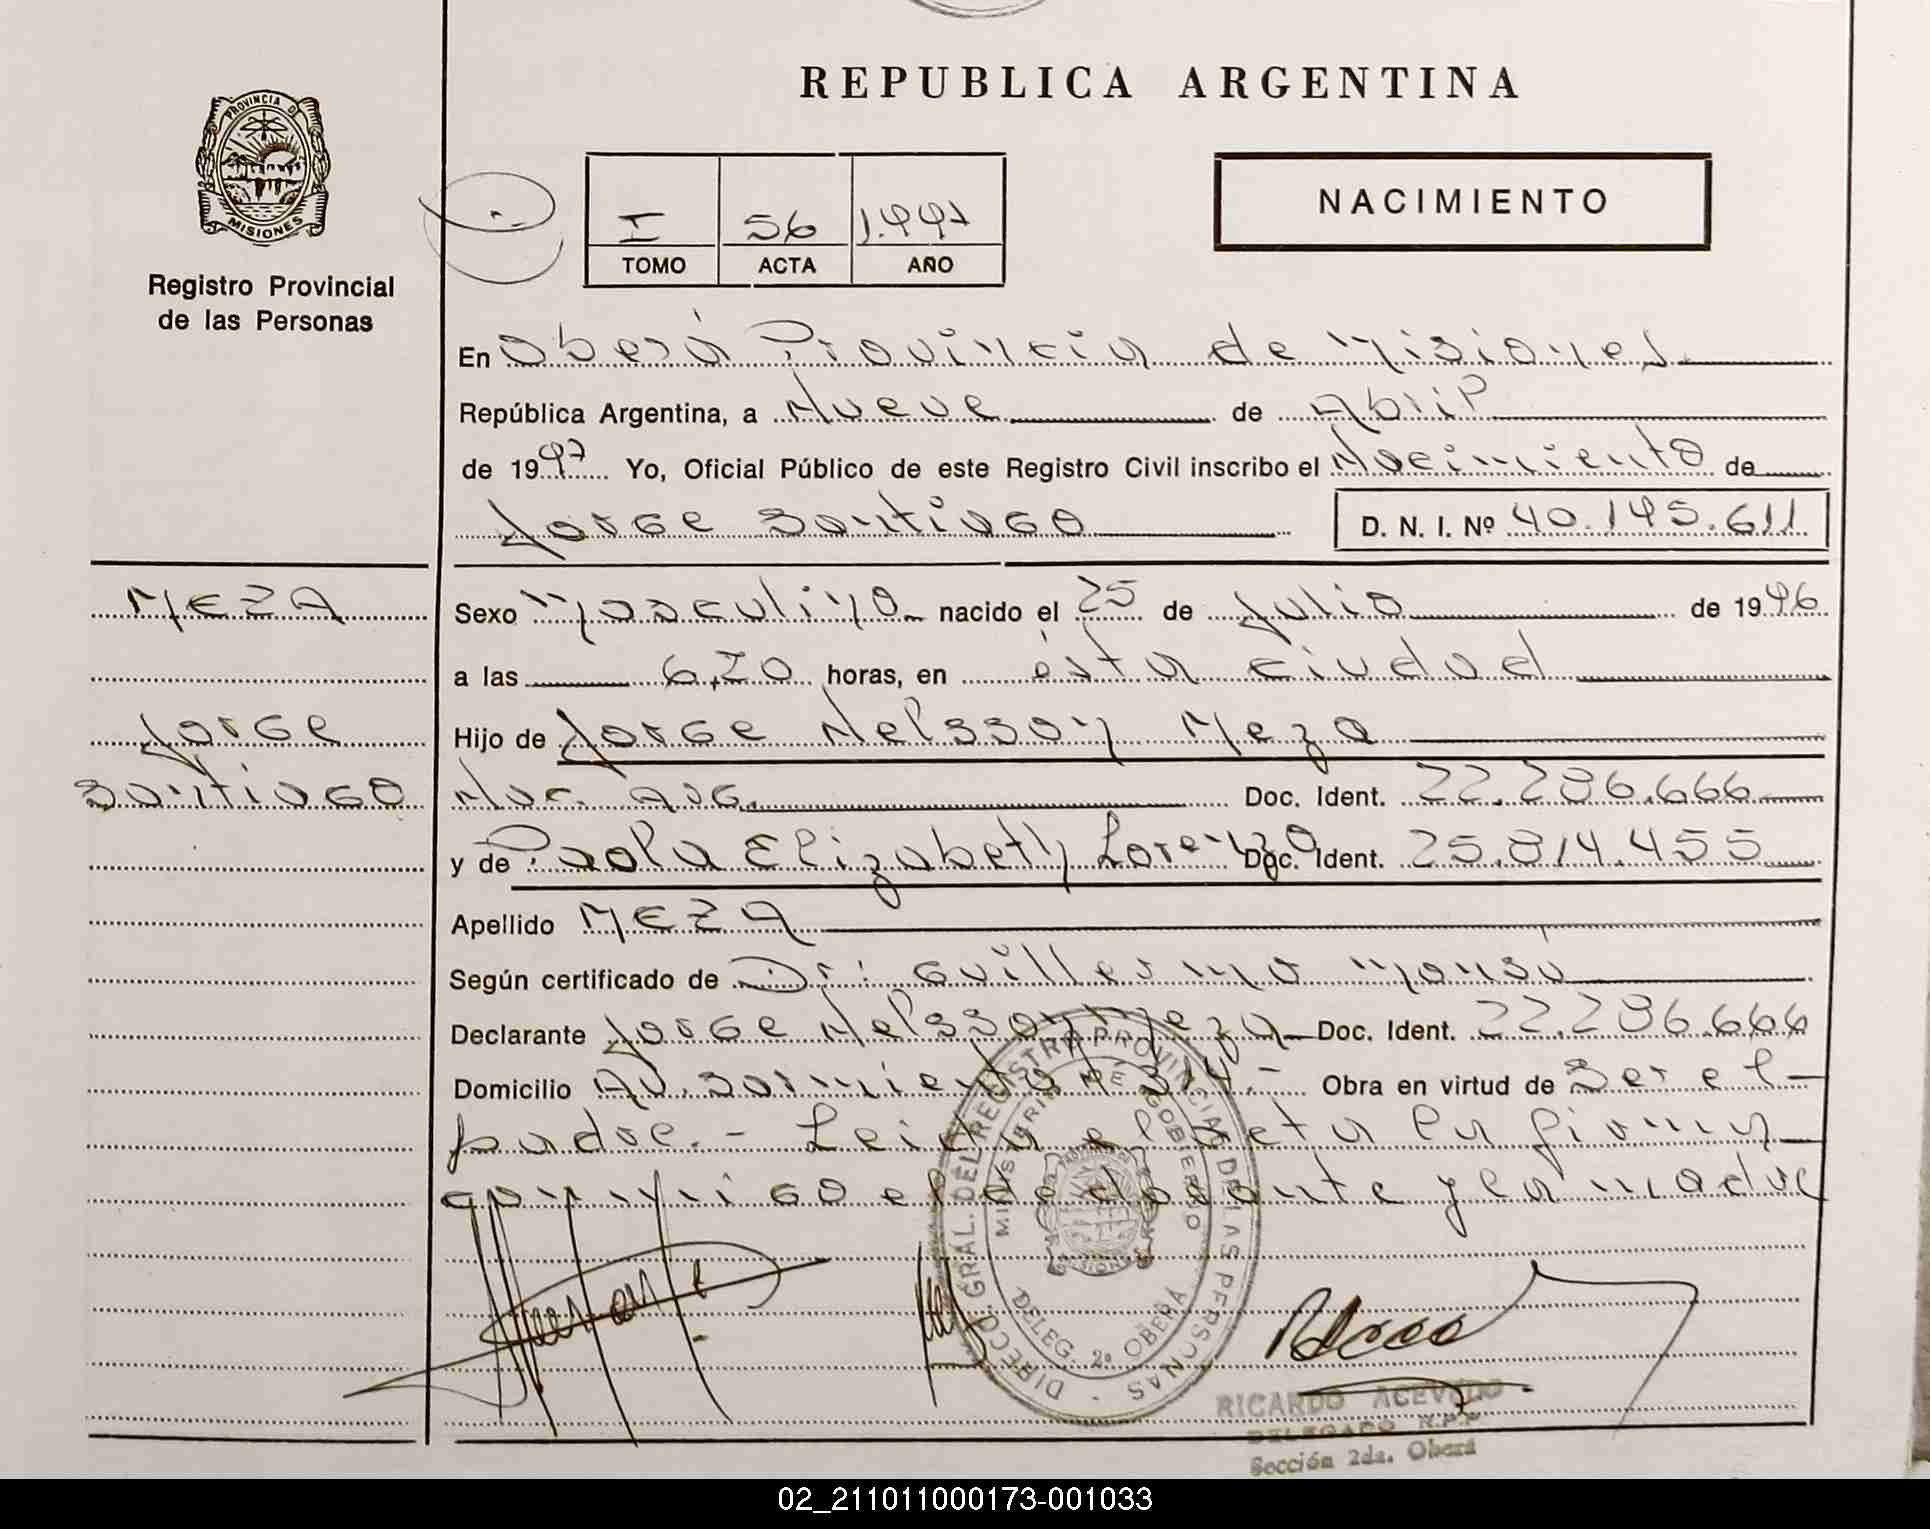 REPUBLICA ARGENTINA
PROVINCIA DE
MISIONES
Registro Provincial
de las Personas
I 56 1.997
TOMO ACTA AÑO
NACIMIENTO
En Oberá Provincia de Misiones
República Argentina, a Nueve de Abril
de 1997 Yo, Oficial Público de este Registro Civil inscribo el Nacimiento de
Jorge Santiago D. N. I. Nº 40.145.611
MEZA
Sexo Masculino nacido el 25 de Julio de 1996
a las 6,20 horas, en ésta ciudad
Jorge
Hijo de Jorge Nelsson Meza
Santiago
Nac. Arg. Doc. Ident. 22.286.666
y de Paola Elizabeth Lorenzo Doc. Ident. 25.814.455
Apellido MEZA
Según certificado de Dr. Guillermo
Declarante Jorge Nelsson Meza Doc. Ident. 22.286.666
Domicilio Av. Sarmiento Nº 314.- Obra en virtud de Ser el
padre.- Leida el acta la firman
conmigo el declarante y la madre
DIRECC. GRAL. DEL REGISTRO PROVINCIAL DE LAS PERSONAS
MINISTERIO DE GOBIERNO
MISIONES
DELEG. 2ª OBERÁ
RICARDO ACEVEDO
DELEGADO R.P.P.
Sección 2da. Oberá
02_211011000173-001033